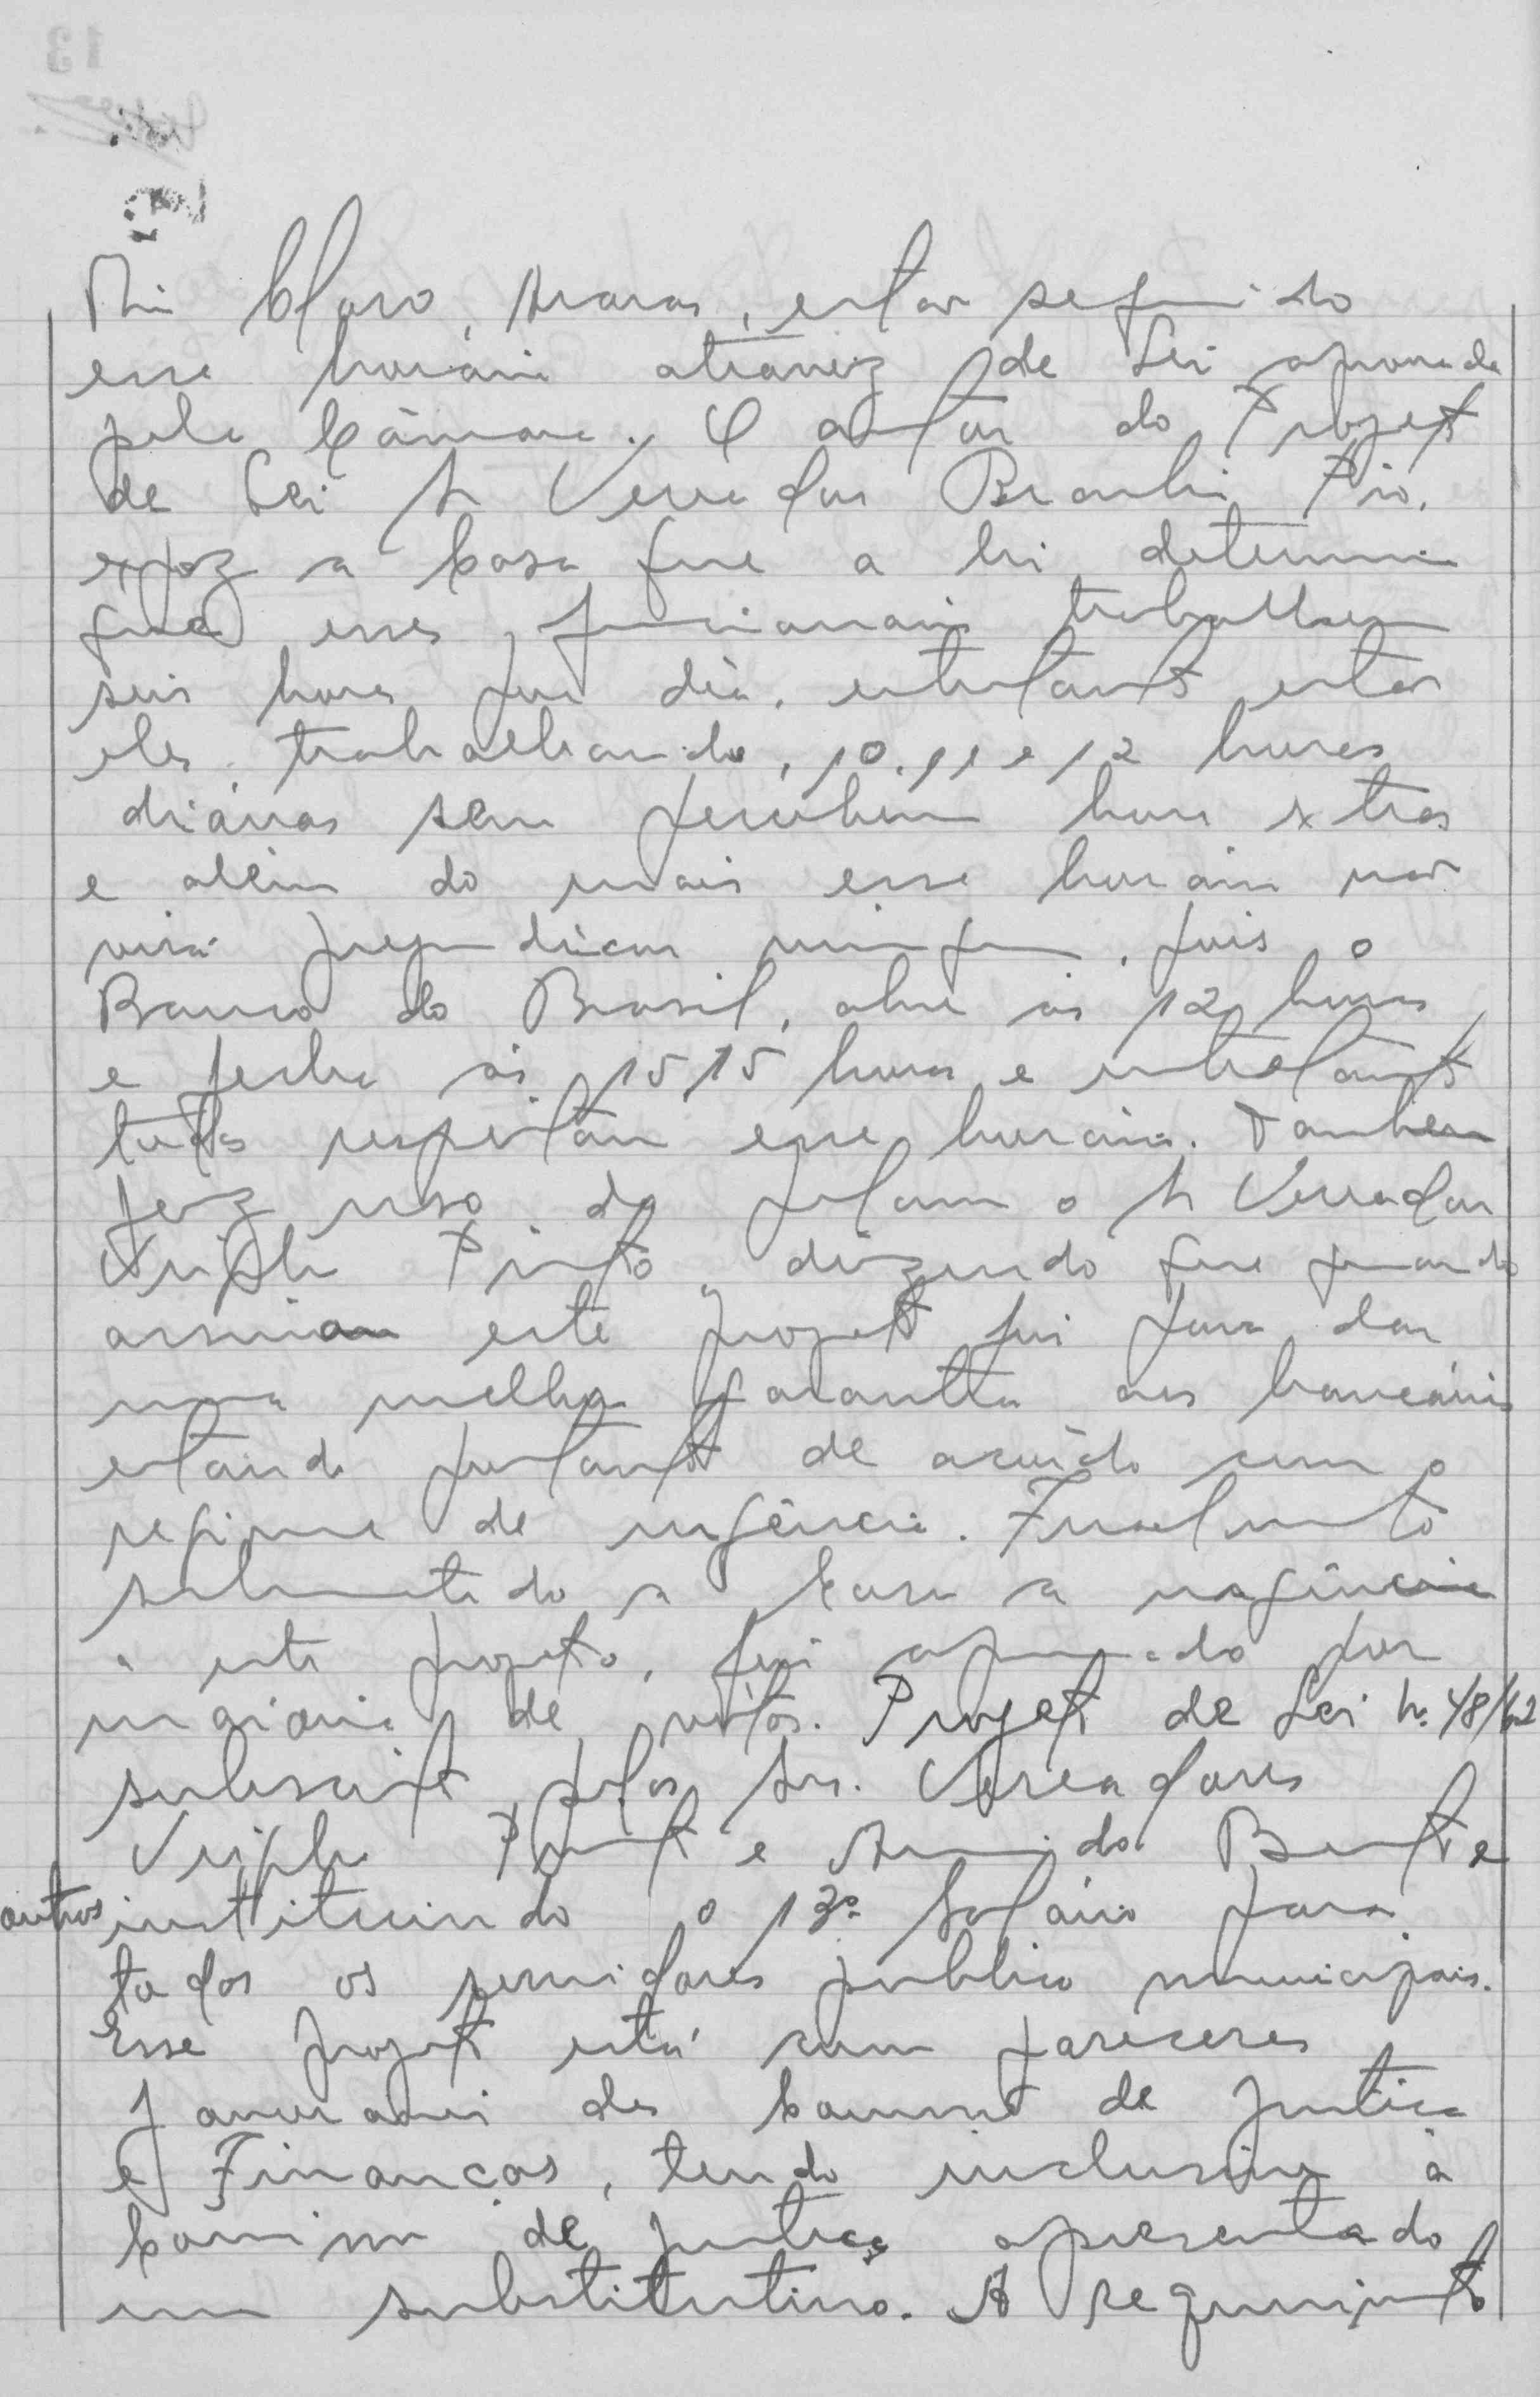 Rio Claro, Araras, estão seguindo
esse horário atravez de Lei aprovada
pela Câmara. O autor do Projeto
de Lei Sr Vereador Pio,
expoz a Casa que a lei determina
que esses funcionarios trabalhem
seis horas por dia, entretanto estão
eles trabalhando, 10, 11 e 12 horas
diárias sem receberem horas extras
e além do mais esse horário não
virá prejudicar ninguem, pois o
Banco do Brasil, abre ás 12 horas
e fecha ás 15 15 horas e entretanto
todos respeitam esse horário. Tambem
fez uso da palavra o Sr Vereador
Pinto, dizendo que quando
assinou este projeto foi para dar
uma melhor garantia aos bancários
estando portanto de acôrdo com o
regime de urgência. Finalmente
submetido a Casa a urgência
a este projeto, foi aprovado por
maioria de votos. Projeto de Lei n. 48/62
subscrito pelos Srs. Vereadores
Pinto e Bento e
outros instituindo o 13º Salário para
todos os servidores publico municipais.
Esse projeto está com pareceres
favoraveis da Comissão de Justiça
e Finanças, tendo inclusive a
Comissão de Justiça apresentado
um substitutivo. A requerimento